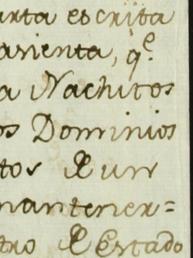 arta escrita
arienta, q.e
a Nachitos
os Dominios
tos & un
mantener=
tro & Estado